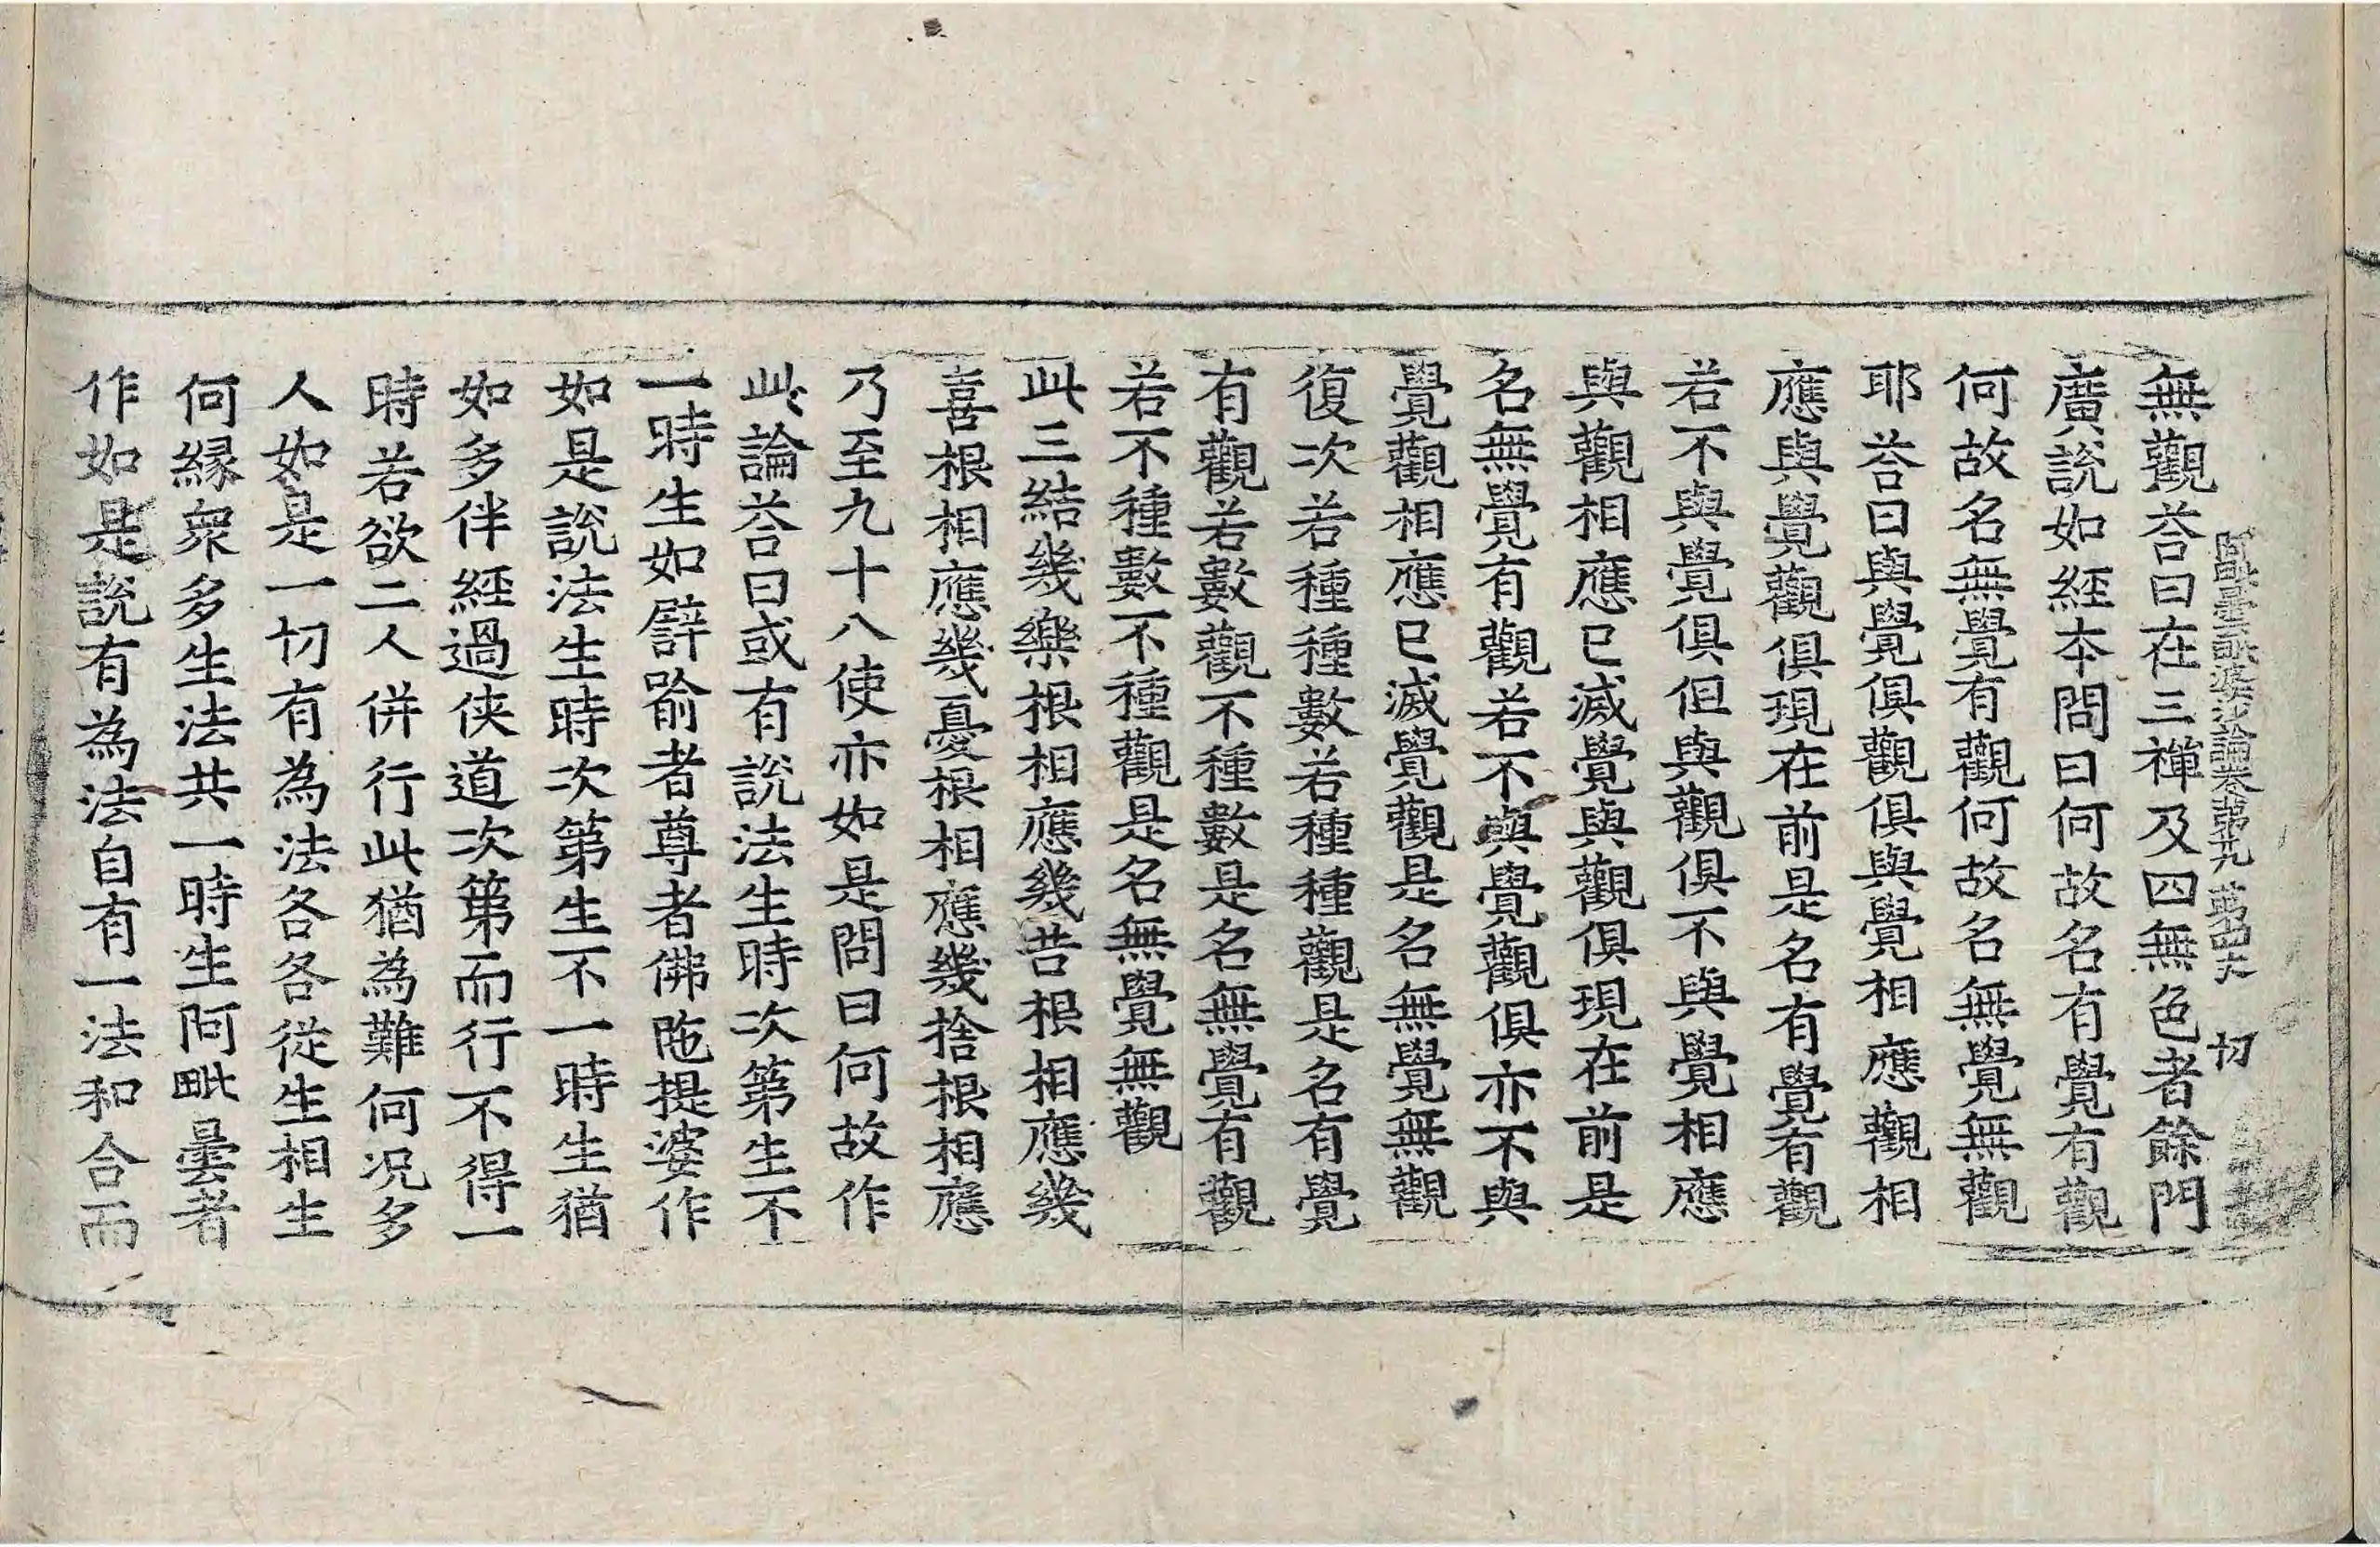 阿毗曇毗婆沙論卷第二九 第四丈 切
無觀荅曰在三禪及四無色者餘門
廣說如經本問曰何故名有覺有觀
何故名無覺有觀何故名無覺無觀
耶荅曰與覺俱觀俱與覺相應觀相
應與覺觀俱現在前是名有覺有觀
若不與覺俱但與觀俱不與覺相應
與觀相應已滅覺與觀俱現在前是
名無覺有觀若不與覺觀俱亦不與
覺觀相應已滅覺觀是名無覺無觀
復次若種種數若種種觀是名有覺
有觀若數觀不種數是名無覺有觀
若不種數不種觀是名無覺無觀
此三結幾樂根相應幾苦根相應幾
喜根相應幾憂根相應幾捨根相應
乃至九十八使亦如是問曰何故作
此論荅曰或有說法生時次第生不
一時生如譬喻者尊者佛陁提婆作
如是說法生時次第生不一時生猶
如多伴經過俠道次第而行不得一
時若欲二人併行此猶為難何況多
人如是一切有為法各各從生相生
何緣衆多生法共一時生阿毗曇者
作如是說有為法自有一法和合而